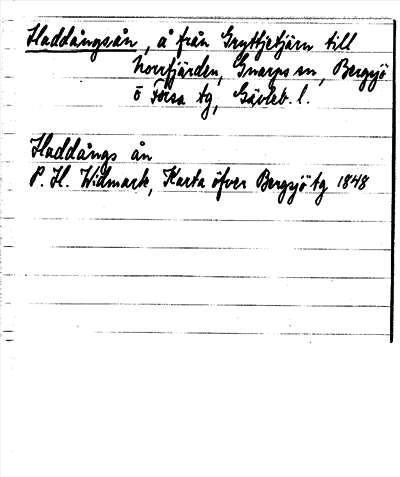 Haddångsån, å från Gryttjetjärn till
Norrfjärden, Gnarps sn, Bergsjö
o Forsa tg, Gävleb. l.
Haddångs ån
P. H. Widmark, Karta öfver Bergsjö tg 1848